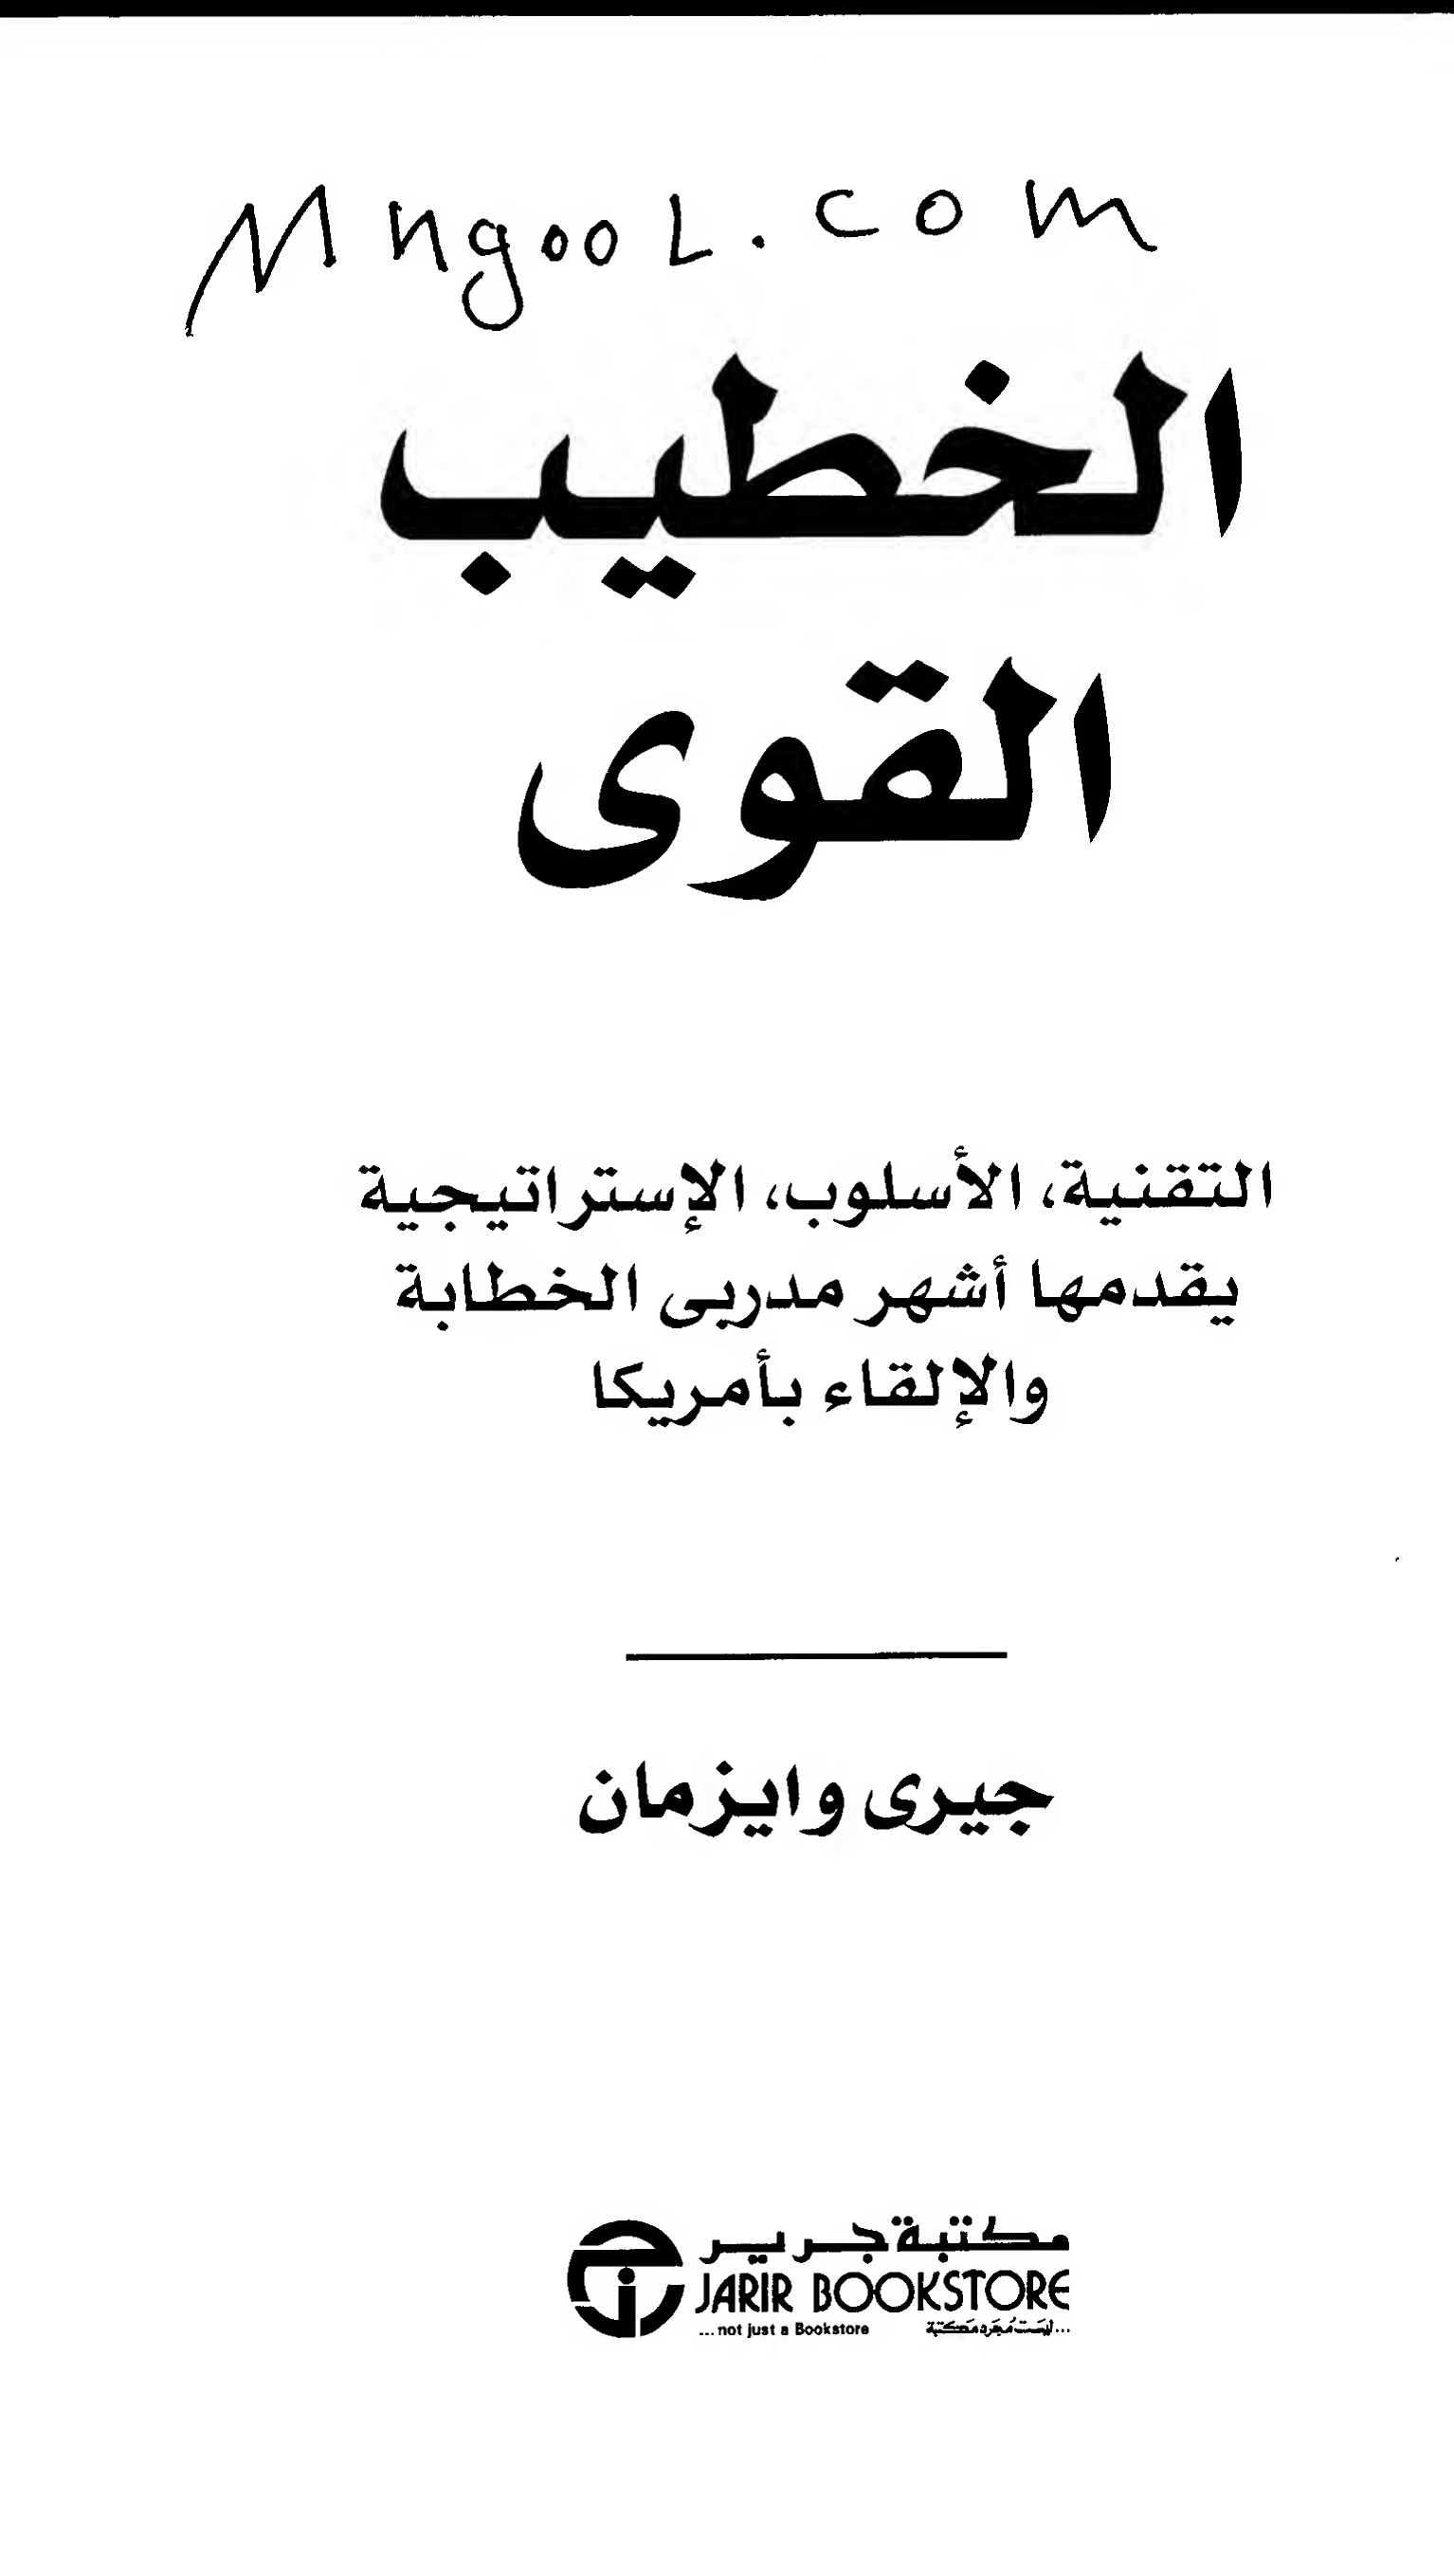 MngooL.com
الخطيب
القوى
التقنية، الأسلوب، الإستراتيجية
يقدمها أشهر مدربى الخطابة
والإلقاء بأمريكا
جيرى وايزمان
مكتبة جرير
JARIR BOOKSTORE
...not just a Bookstore ...ليست مجرد مكتبة